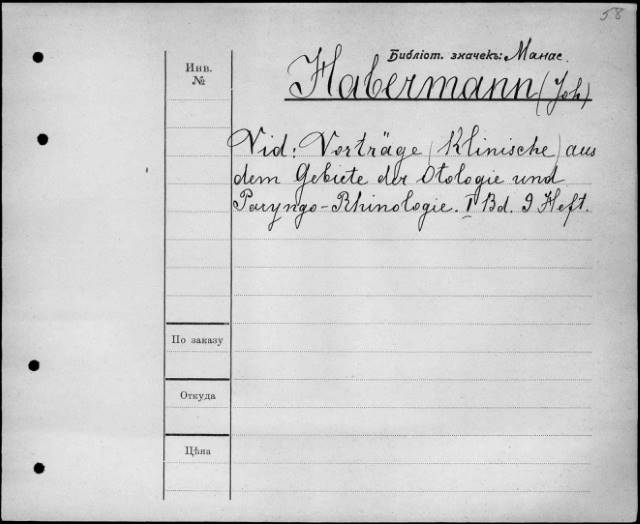 58
Библіот. значекъ: Манас.
Инв.
№
Habermann (Joh)
Vid: Vorträge (Klinische) aus
dem Gebiete der Otologie und
Paryngo-Rhinologie. I Bd. 9 Heft.
По заказу
Откуда
Цѣна